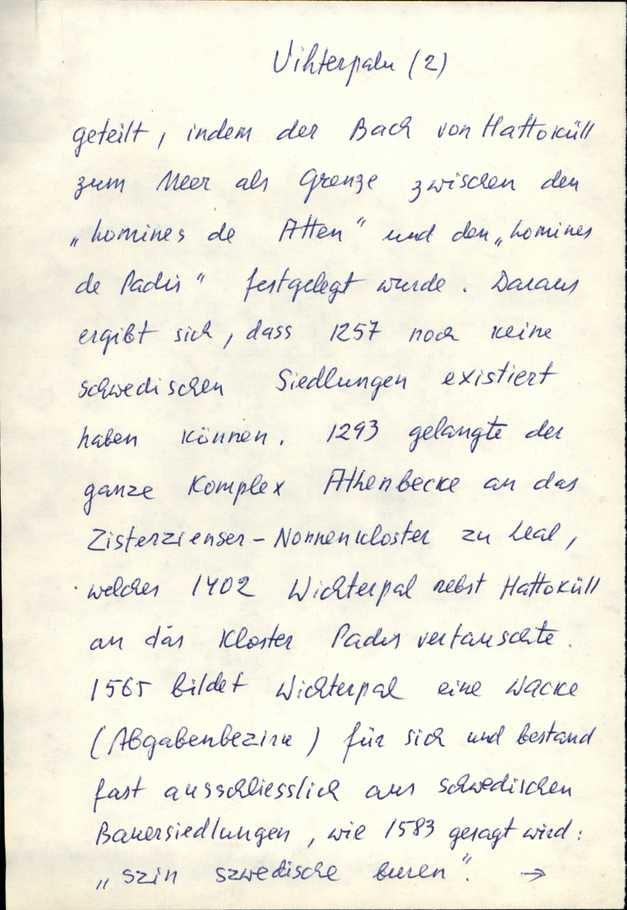 Vihterpalu (2)
geteilt, indem der Bach von Hattoküll
zum Meer als Grenze zwischen den
„homines de Atten" und den „homines
de Padis" festgelegt wurde. Daraus
ergibt sich, dass 1257 noch keine
schwedischen Siedlungen existiert
haben können. 1293 gelangte der
ganze Komplex Athenbecke an das
Zisterzienser-Nonnenkloster zu Leal,
welches 1402 Wichterpal nebst Hattoküll
an das Kloster Padis vertauschte.
1565 bildet Wichterpal eine Wacke
(Abgabenbezirk) für sich und bestand
fast ausschliesslich aus schwedischen
Bauersiedlungen, wie 1583 gesagt wird:
„szin szwedische buren". →